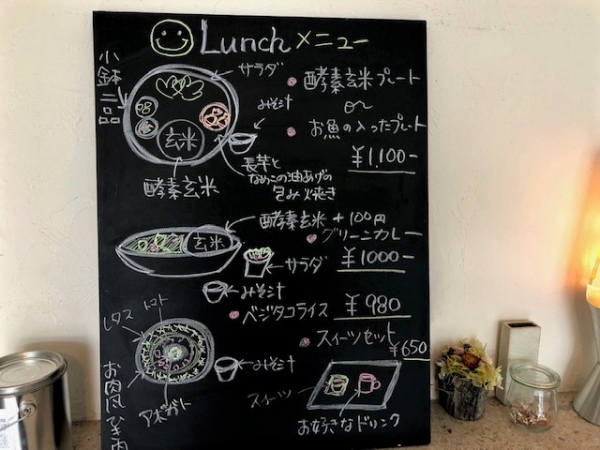 Lunch メニュー
小鉢二品
サラダ
みそ汁
玄米
酵素玄米
長芋と
なめこの油あげの
包み焼き
酵素玄米プレート
or
お魚の入ったプレート
¥1,100-
酵素玄米+100円
玄米
グリーンカレー
¥1000-
サラダ
みそ汁
ベジタコライス ¥980
レタス
トマト
みそ汁
アボガド
お肉風ひき肉
スイーツセット
¥650
スイーツ
お好きなドリンク